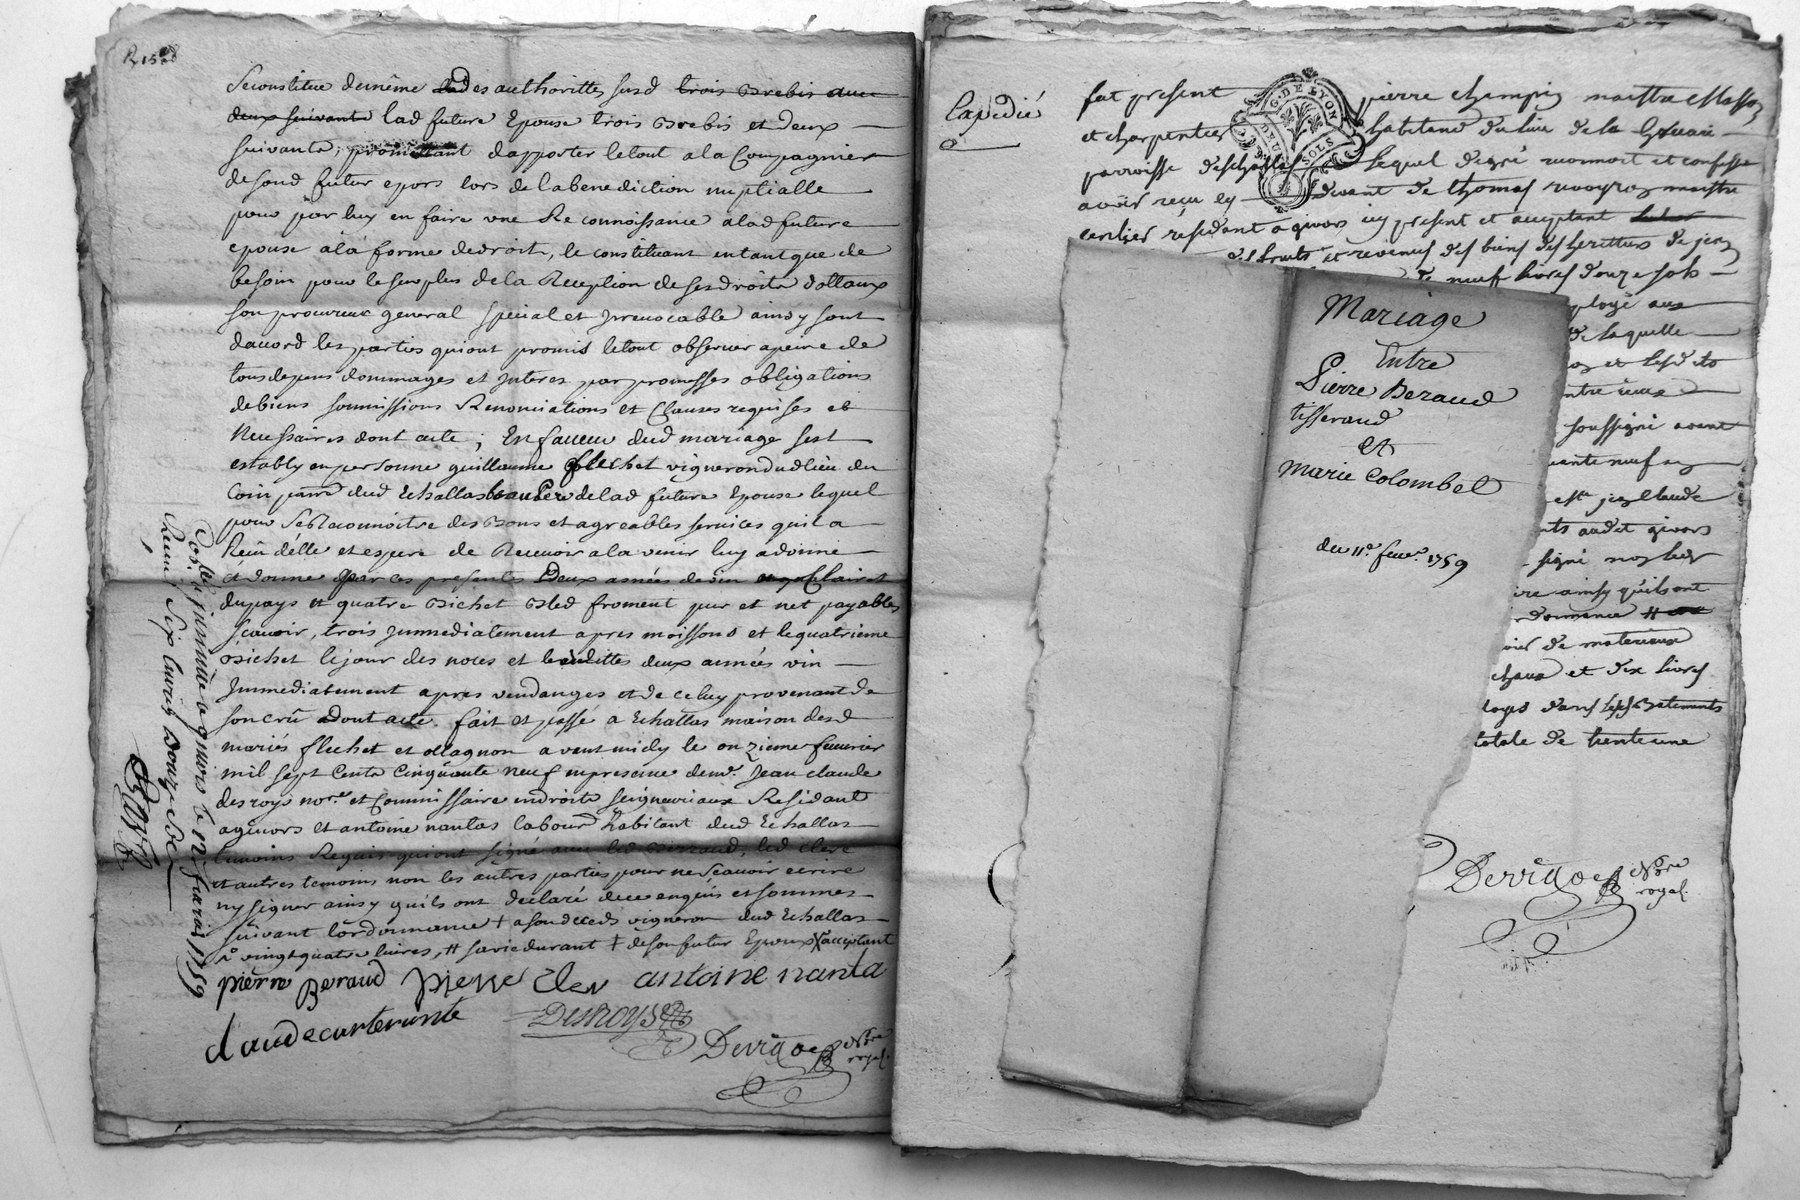 R 15
Seconstitue demême desauthorittes susd trois Brebis avec
deux suivants lad future Epouse trois Brebis et deux
suivants, promettant dapporter letout ala Compagnier
desond futur epoux lors de labenediction nuptialle
pour par luy en faire une Reconnoissance alad future
epouse àlà forme dedroit, le constituant entantque de
besoin pour le surplus dela Reception desesdroits dottaux
son procureur general special et Irrevocable ainsy sont
daccord les parties quiont promis letout observer apeine de
tousdepens dommages et Interes par promesses obligations
debiens soumissions Renonciations et Clauses requises et
Necessaires dont acte; En faveur dud mariage sest
estably enpersonne guillaume flechet vignerondudlieu du
Coin parre dud Echallas beauPere delad future Epouse lequel
pour seReconnoitre des Bons et agreables services quil a
Receu délle et espere de Recevoir ala venir luy adonné
et donne par ces presentes Deux asnées devin Clairet
dupays et quatre Bichet Bled froment pur et net payables
scavoir, trois Immediatement apres moissons et lequatrieme
Bichet lejour des noces et lesdittes deux asnées vin
Immediatement apres vendanges et de celuy provenant de
son crû dont acte. fait et passé a Echallas maison desd
mariés flechet et ollagnon avant midy le onzieme fevrier
mil sept Cents Cinquante neuf enpresence demr. Jean claude
desroys nore. et Commissaire endroits seigneuriaux Residant
agivors et antoine nantas labourr habitant dud Echallas
temoins Requis quiont signé avec led Berraud, led clerc
et autres temoins non les autres parties pour nesçavoir ecrire
ny signer ainsy quils ont declaré dece enquis et sommes
suivant lordonnance + asondeceds vigneron dud Echallas
vingtquatre livres, # savie durant + desonfutur Epoux acceptant
pierre Beraud pierre Cler antoine nanta
claudecurterunte Desroys
Derrado Nore
royal
Con.lé jinsinüe a givors le 12 fevrier 1759
Receu six livres douze sols
Expedié
fut present pierre champin maittre Masson
et charpentier habitand du lieu de la
parroisse deschallas lequel degré reconnoit et confesse
avoir reçu cy devant de thomas maitre
residant a givors icy present et acceptant
des fruits et revenus des biens des heritiers de jean
de neuf livres douze sols
ployé aux
de laquelle
et lesdts
entre eux
soussigné avant
uante neuf
jn Claude
nts audit givors
signé
ire ainsy quils ont
donnance
de materiaux
chaux et dix livres
loyés dans lesds Batiments
totale de trente une
G. DE LYON
SOLS
Derrado Nore
royal
Mariage
Entre
Pierre Beraud
tisserand
et
Marie Colombet
du 11e. fevr. 1759